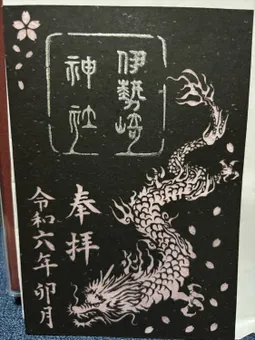 伊勢崎
神社
奉拝
令和六年 卯月